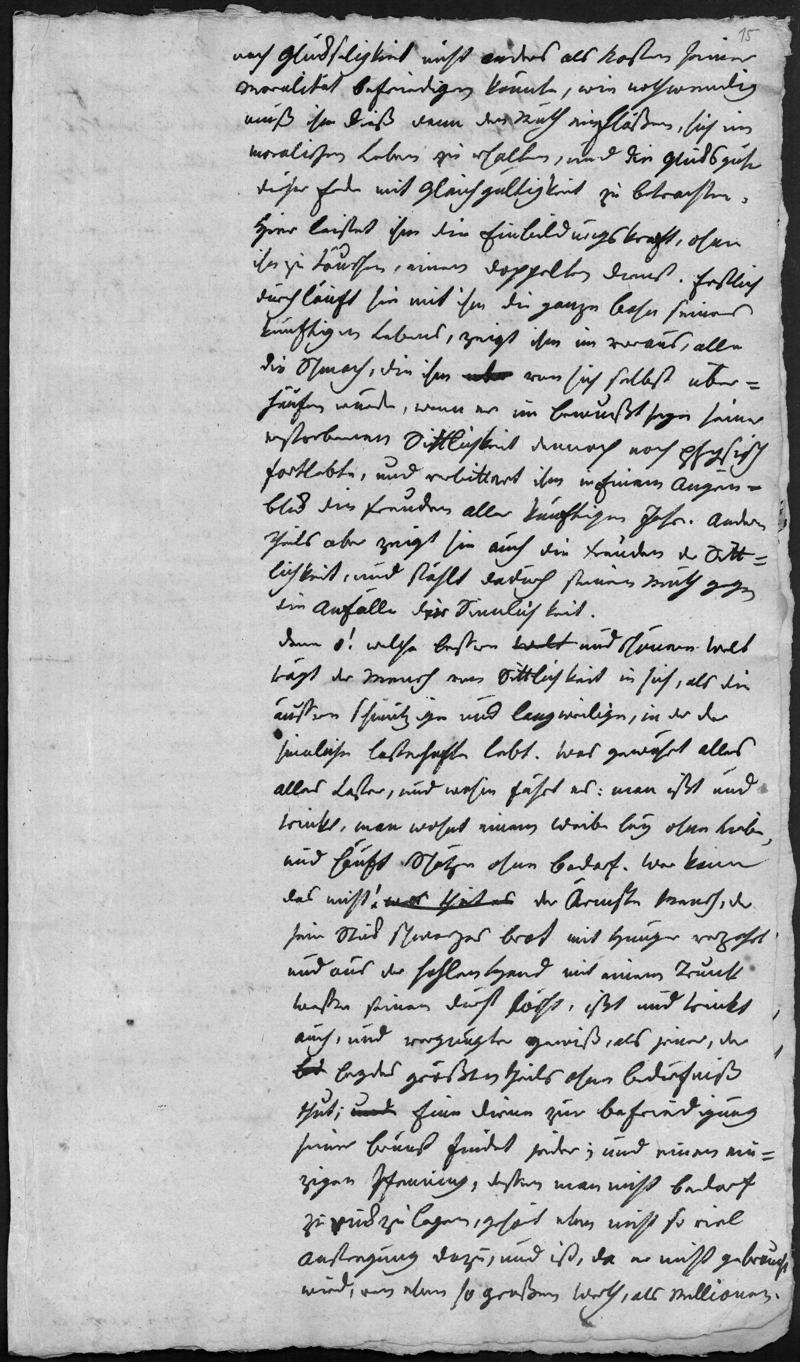 15
nach Glückseligkeit nicht anders als kosten seiner
Moralität befriedigen könnte, wie nothwendig
muß ihm dieß denn den Muth einflößen, sich im
moralischen Leben zu erhalten, und die Glücksgüter
dieser Erde mit Gleichgültigkeit zu betrachten.
Hier leistet ihm die Einbildungskraft, ohne
ihn zu täuschen, einen doppelten Dienst. Erstlich
durchläuft sie mit ihm die ganze Bahn seines
künftigen Lebens, zeigt ihm im voraus, alle
die Schmach, die ihn von sich selbst über=
häufen würde, wenn er im Bewußtseyn seiner
erstorbenen Sittlichkeit dennoch noch physisch
fortlebte, und verbittert ihm in Einem Augen=
blick die Freuden aller künftigen Jahre. Andern
theils aber zeigt sie auch die Freuden der Sitt=
lichkeit, und stählt dadurch seinen Muth gegen
die Anfälle der Sinnlichkeit.
Denn o! welche bessere und schönere Welt
trägt der Mensch von Sittlichkeit in sich, als die
äussere schmutzige und langweilige, in der der
sinnliche lasterhafte lebt. Was gewährt alles
alles Laster, und wohin führt es: man ißt und
trinkt, man wohnt einem Weibe bey ohne Liebe,
und häuft Schätze ohne Bedarf. Wer kann
das nicht! der Ärmste Mensch, der
sein Stück schwarzes Brot mit Hunger verzehrt
und aus der hohlen Hand mit einem Trunk
Wasser seinen Durst löscht, ißt und trinkt
auch, und vergnügter gewiß, als jener, der
beydes größtentheils ohne Bedürfniß
thut; Eine Dirne zur Befriedigung
seiner Brunst findet jeder; und einen ein=
zigen Pfenning, dessen man nicht bedarf
zurückzulegen, gehört eben nicht so viel
Anstrengung dazu, und ist, da er nicht gebraucht
wird, von eben so großem Werth, als Millionen.